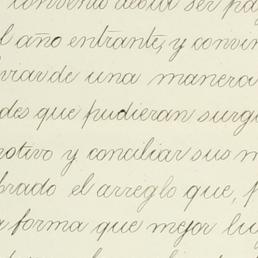 convenio debía ser pa
l año entrante, y convin
virar de una manera
des que pudieran surg
motivo y conciliar sus m
brado el arreglo que, p
a forma que mejor lu